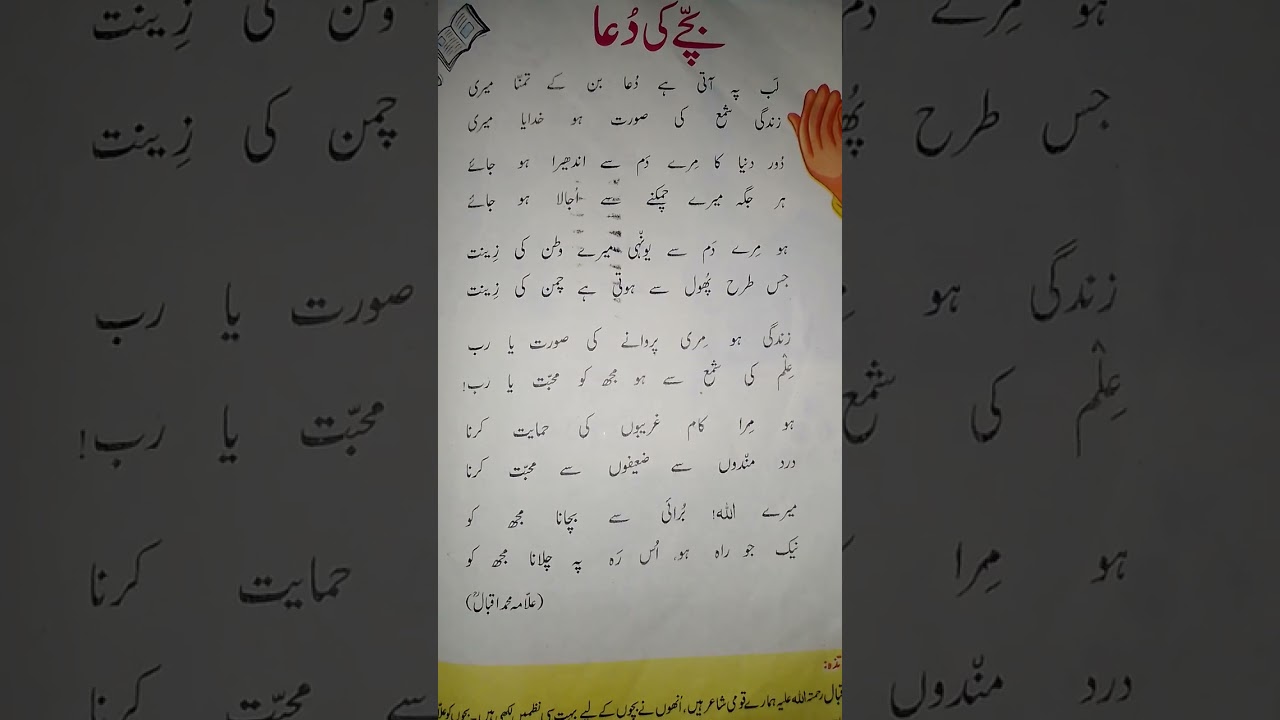 بچّے کی دُعا
لَب پہ آتی ہے دُعا بن کے تمنّا میری
زندگی شمع کی صورت ہو خدایا میری
دُور دنیا کا مِرے دَم سے اندھیرا ہو جائے
ہر جگہ میرے چمکنے سے اُجالا ہو جائے
ہو مِرے دَم سے یونہی میرے وطن کی زِینت
جس طرح پُھول سے ہوتی ہے چمن کی زِینت
زندگی ہو مِری پروانے کی صورت یا رب
عِلْم کی شمع سے ہو مجھ کو محبّت یا رب!
ہو مِرا کام غریبوں کی حمایت کرنا
درد منّدوں سے ضعیفوں سے محبّت کرنا
میرے اللہ! بُرائی سے بچانا مجھ کو
نیک جو راہ ہو، اُس رَہ پہ چلانا مجھ کو
(علّامہ محمد اقبالؒ)
رحمتہ اللہ علیہ ہمارے قومی شاعر ہیں، اُنھوں نے بچوں کے لیے بہت سی نظمیں لکھی ہیں۔